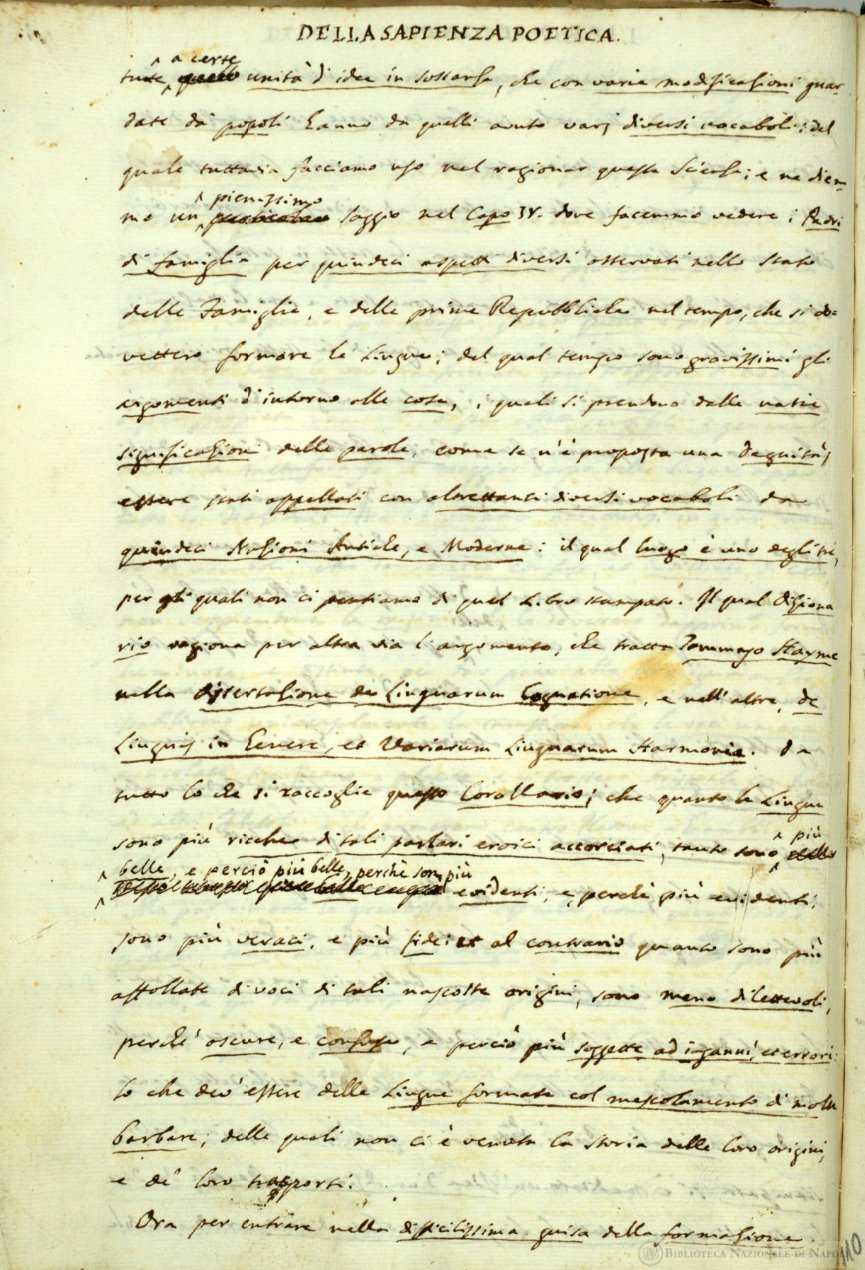 DELLA SAPIENZA POETICA.
a certe
tutte unità d'idee in sostanza, che con varie modificazioni guar-
date da' popoli hanno da quelli avuto varj diversi vocaboli; del
quale tuttavia facciamo uso nel ragionar questa Scienza; e ne diem-
pienissimo
mo un saggio nel Capo IV. dove facemmo vedere i Padri
di famiglia per quindici aspetti diversi osservati nello stato
delle Famiglie, e delle prime Repubbliche nel tempo, che si do-
vettero formare le Lingue; del qual tempo sono gravissimi gli
argomenti d'intorno alle cose, i quali si prendono dalle natie
significazioni delle parole, come se n'è proposta una Degnità;
essere stati appellati con altrettanti diversi vocaboli da
quindici Nazioni Antiche, e Moderne: il qual luogo è uno degli tre,
per gli quali non ci pentiamo di quel Libro stampato. Il qual Diziona-
rio ragiona per altra via l'argomento, che tratta Tommaso Hayne
nella dissertazione de Linguarum Cognatione, e nell'altre, de
Linguis in Genere, et Variarum Linguarum Harmonia. Da
tutto lo che si raccoglie questo Corollario; che quanto le Lingue
sono più ricche di tali parlari eroici accorciati, tanto sono
più
belle, e perciò più belle, perchè son più
evidenti, e, perchè più evidenti,
sono più veraci, e più fide: et al contrario quanto sono più
affollate di voci di tali nascoste origini, sono meno dilettevoli,
perchè oscure, e confuse, e perciò più soggette ad inganni, et errori:
lo che dev'essere delle Lingue formate col mescolamento di molte
barbare; delle quali non ci è venuta la storia delle loro origini,
e de' loro trasporti.
Ora per entrare nella difficilissima guisa della formazione
BIBLIOTECA NAZIONALE DI NAPOLI
110